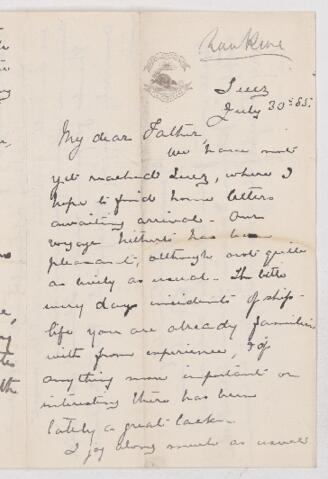 Rankine
Suez
July 30th 85.
My dear Father
We have not
yet reached Suez, where I
hope to find home letters
awaiting arrival - Our
voyage hitherto has been
pleasant, although not quite
as lively as usual - The little
every day incidents of ship-
life you are already familiar
with from experience, & of
anything more important or
interesting there has been
lately a great lack -
I jog along much as usual
the